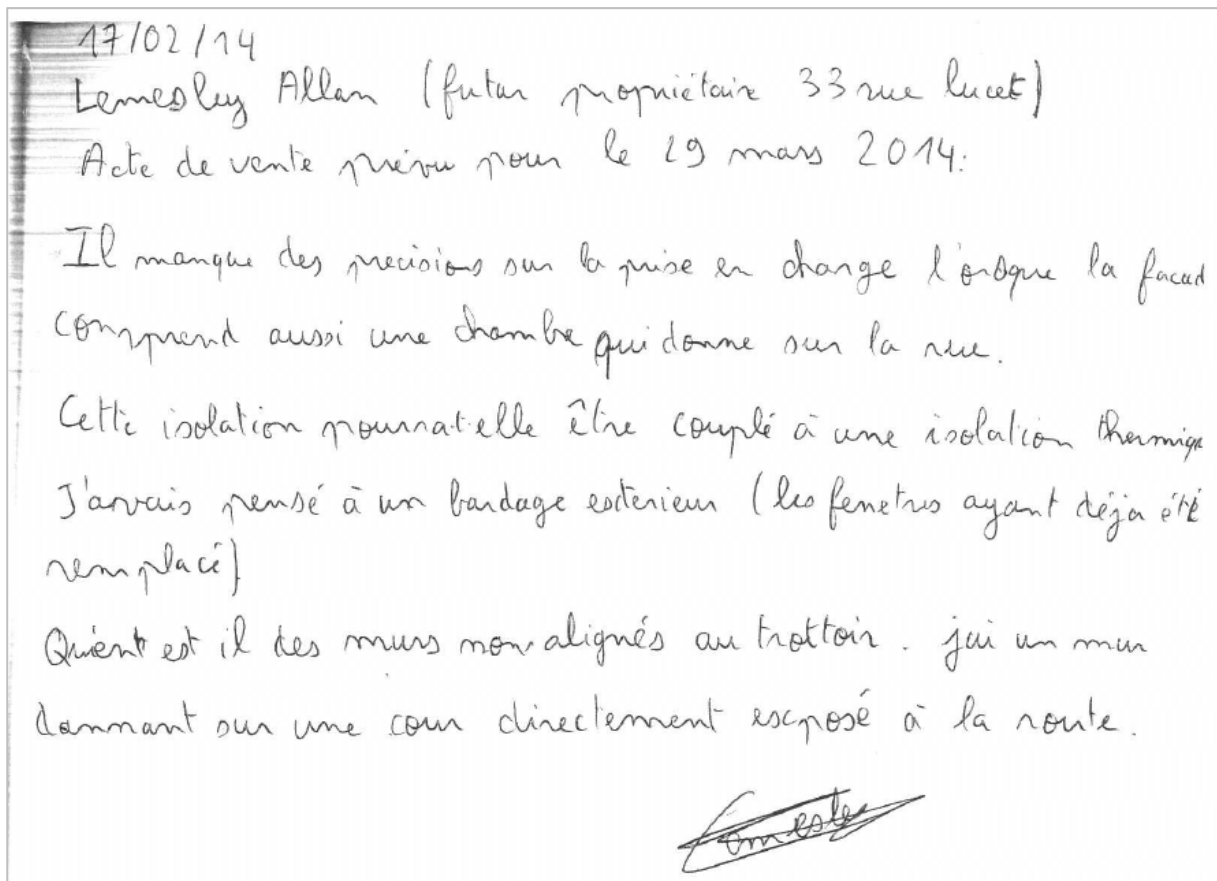 17/02/14
Lemesley Allan (futur propriétaire 33 rue lucet)
Acte de vente prévu pour le 29 mars 2014.
Il manque des precisions sur la prise en charge l'orsque la facad
comprend aussi une chambre qui donne sur la rue.
Cette isolation pourrat-elle être couplé à une isolation thermiqu
J'avais pensé à un bardage exterieur (les fenetres ayant déja été
remplacé)
Qu'ent est il des murs non-alignés au trottoir. j'ai un mur
donnant sur une cour directement exposé à la route.